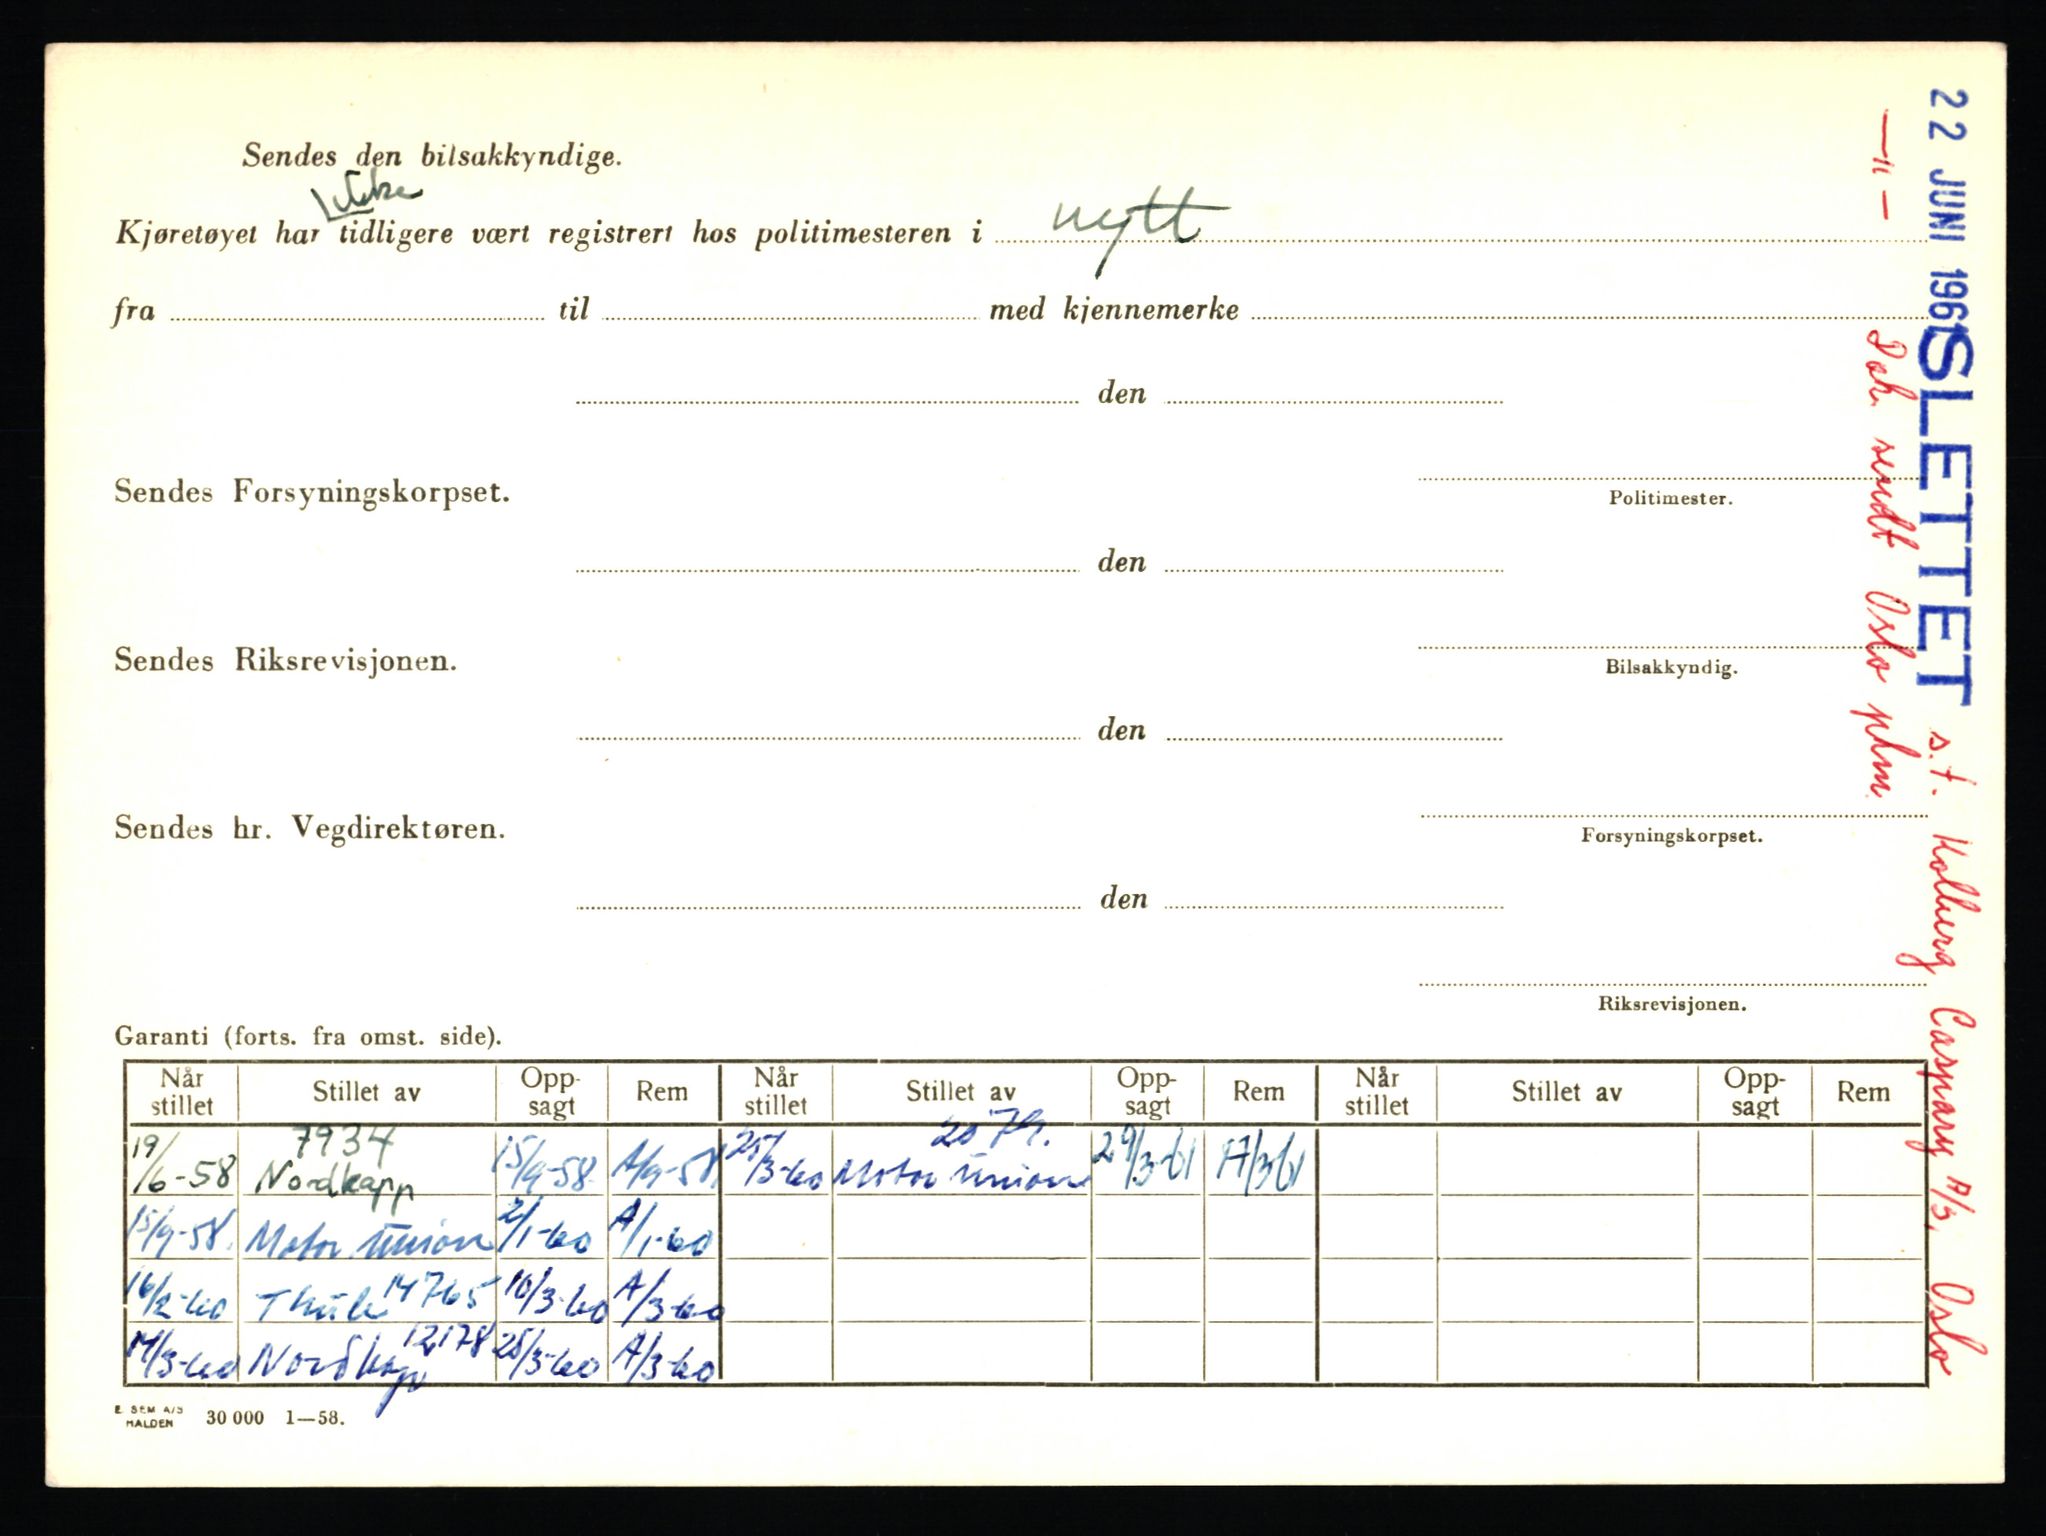 Sendes den bilsakkyndige.
ikke
Kjøretøyet har tidligere vært registrert hos politimesteren i nytt
fra til med kjennemerke
den
Sendes Forsyningskorpset.
Politimester.
den
Sendes Riksrevisjonen.
Bilsakkyndig.
den
Sendes hr. Vegdirektøren.
Forsyningskorpset.
den
Riksrevisjonen.
Garanti (forts. fra omst. side).
Når stillet Stillet av Opp-sagt Rem Når stillet Stillet av Opp-sagt Rem Når stillet Stillet av Opp-sagt Rem
19/6-58 7934 Nordkapp 15/9-58 A/9-58 25/3-60 Motor Union 29/3-61 A/3-61
15/9-58. Motor Union 2/1-60 A/1-60
16/2-60 Thule 14765 10/3-60 A/3-60
14/3-60 Nordkapp 12178 25/3-60 A/3-60
E. SEM A/S
HALDEN
30 000 1—58.
22 JUNI 1961 SLETTET s.t. Kolberg Caspary A/S, Oslo
—"— Dok. sendt Oslo pkm.